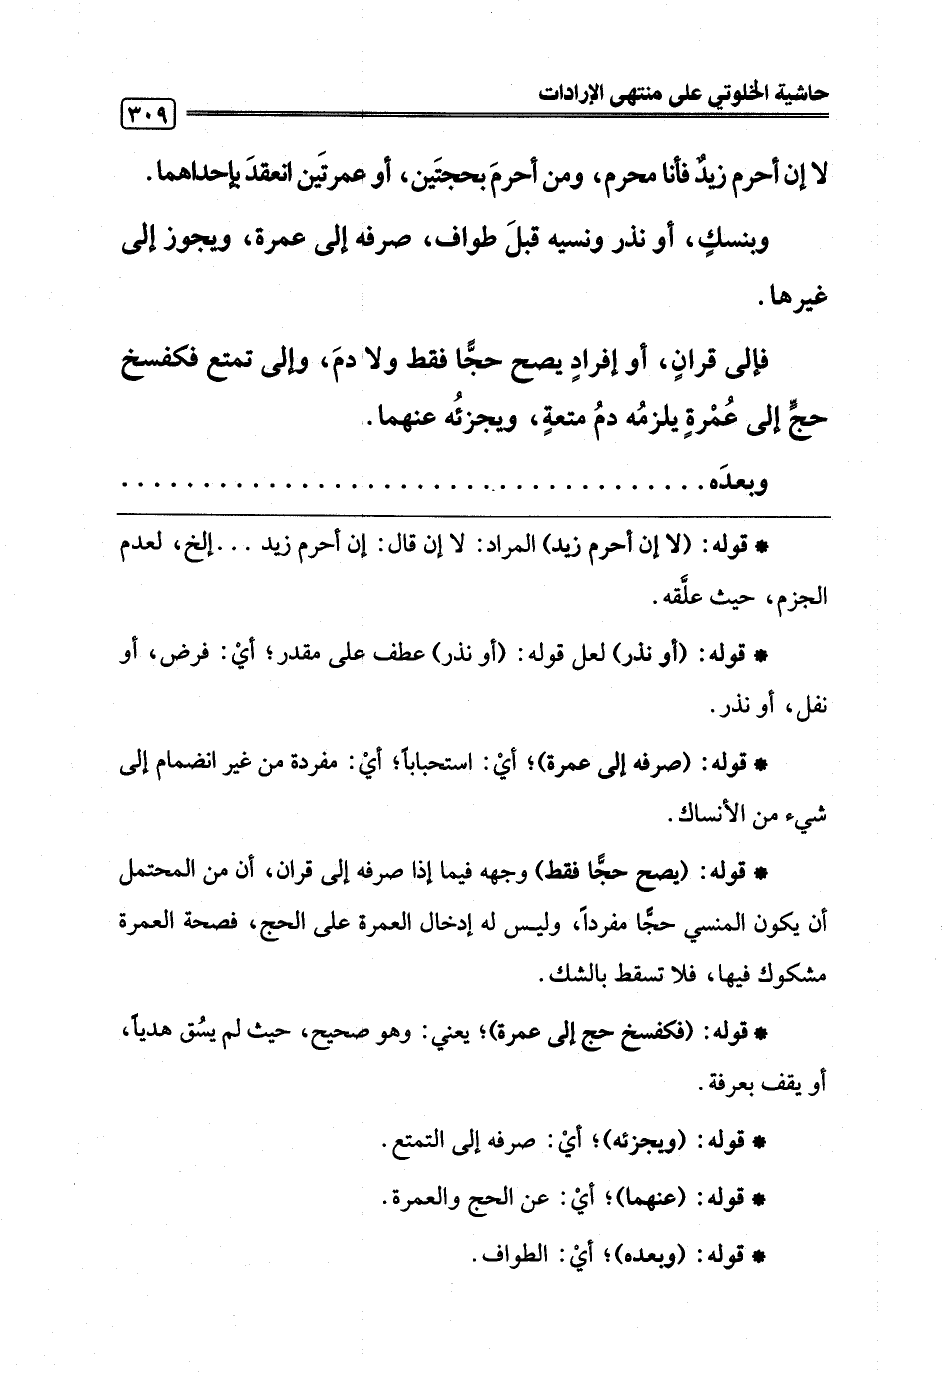 حاشية الخلوتي على منتهى الإرادات
٣٠٩
لا إن أحرم زيدٌ فأنا محرم، ومن أحرمَ بحجتَين، أو عمرتَين انعقدَ بإحداهما.
وبنسكٍ، أو نذر ونسيه قبلَ طواف، صرفه إلى عمرة، ويجوز إلى
غيرها.
فإلى قرانٍ، أو إفرادٍ يصح حجًّا فقط ولا دمَ، وإلى تمتع فكفسخ
حجٍّ إلى عُمْرةٍ يلزمُه دمُ متعةٍ، ويجزئُه عنهما.
وبعدَه . . . . . . . . . . . . . . . . . . . . . . . . . . . . . . . . . . . .
* قوله: (لا إن أحرم زيد) المراد: لا إن قال: إن أحرم زيد . . . إلخ، لعدم
الجزم، حيث علَّقه.
* قوله: (أو نذر) لعل قوله: (أو نذر) عطف على مقدر؛ أيْ: فرض، أو
نفل، أو نذر.
* قوله: (صرفه إلى عمرة)؛ أيْ: استحباباً؛ أيْ: مفردة من غير انضمام إلى
شيء من الأنساك.
* قوله: (يصح حجًّا فقط) وجهه فيما إذا صرفه إلى قران، أن من المحتمل
أن يكون المنسي حجًّا مفرداً، وليس له إدخال العمرة على الحج، فصحة العمرة
مشكوك فيها، فلا تسقط بالشك.
* قوله: (فكفسخ حج إلى عمرة)؛ يعني: وهو صحيح، حيث لم يسُق هدياً،
أو يقف بعرفة.
* قوله: (ويجزئه)؛ أيْ: صرفه إلى التمتع.
* قوله: (عنهما)؛ أيْ: عن الحج والعمرة.
* قوله: (وبعده)؛ أيْ: الطواف.